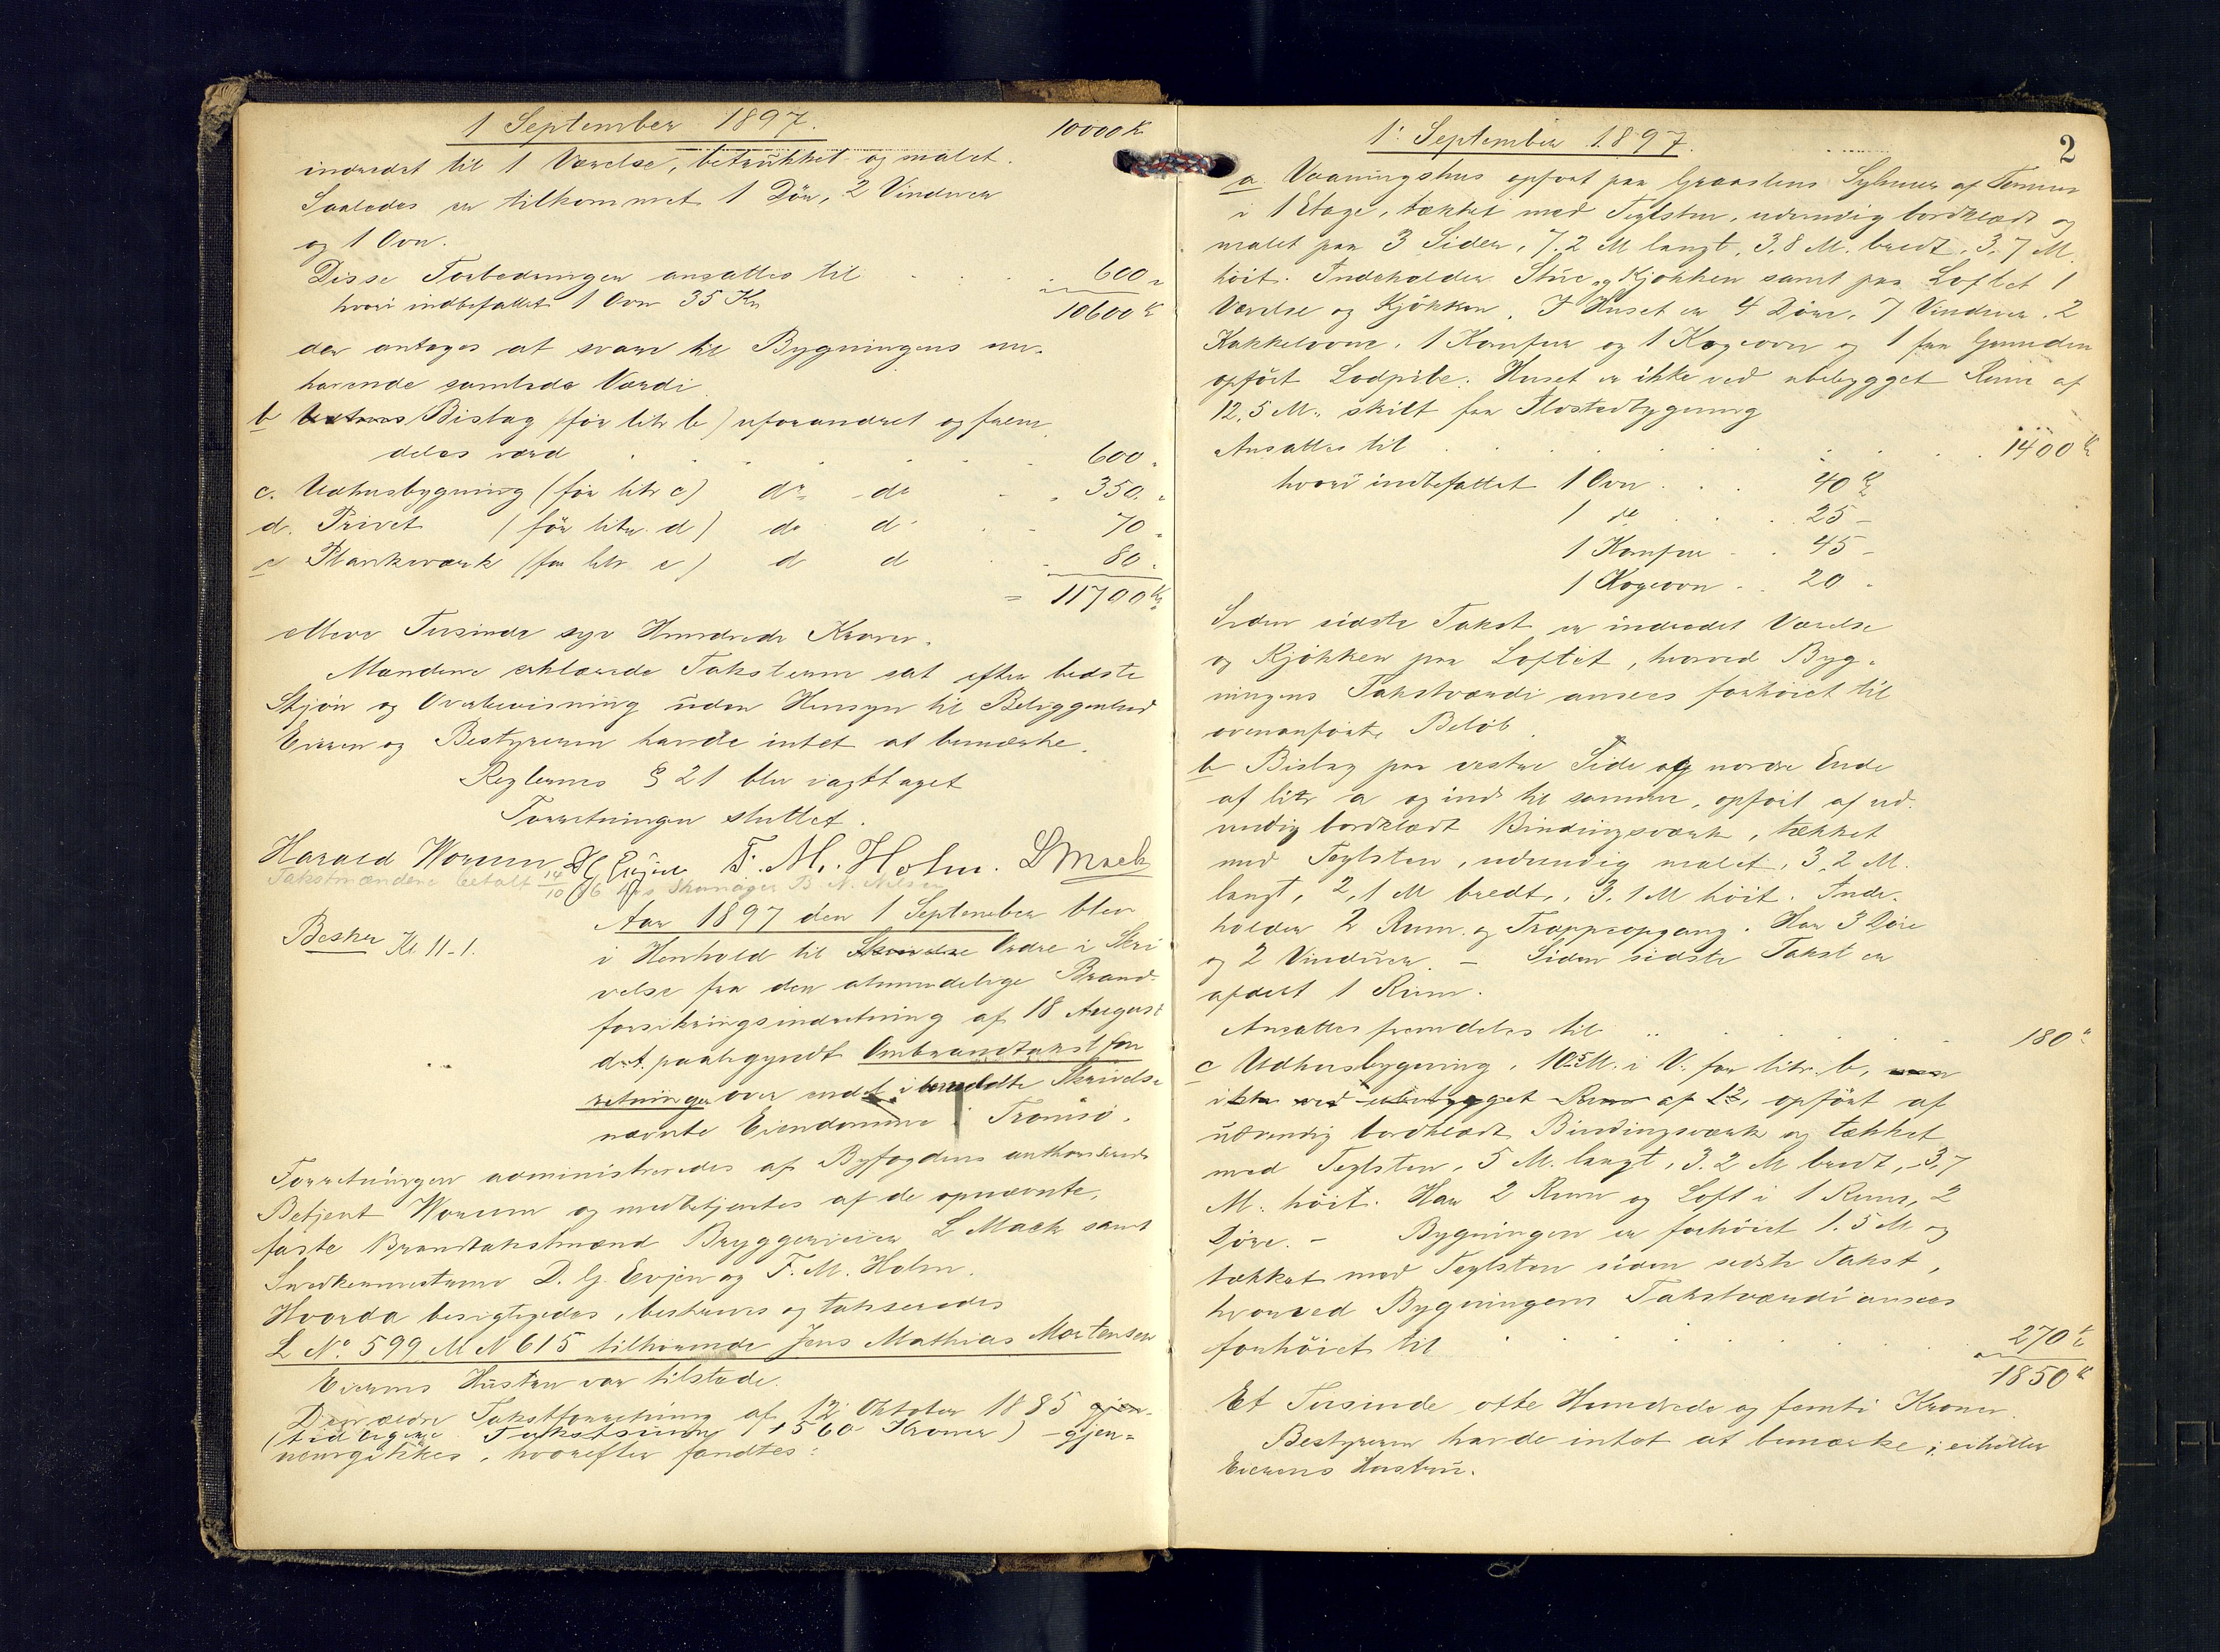 1 September 1897.
10000 Kr
indredet til 1 Værelse, betrukket og malet.
Saaledes er tilkommet 1 Dör, 2 Vinduer
og 1 Ovn.
Disse Forbedringer ansattes til . . . 600 "
hvori indbefattet 1 Ovn 35 Kr
10600 Kr
der antages at svare til Bygningens nu-
havende samlede Værdi
b Bislag (för litr b) uforandret og frem
deles værd . . . . . 600 "
c. Udhusbygning (för litr c) do do . . 350. "
d. Privet (för litr. d) do d . . 70 "
e Plankeværk (för litr e) d d . . 80 "
= 11700 Kr
elleve Tusinde syv Hundrede Kroner.
Mændene erklærede Taksterne sat efter bedste
Skjön og Overbevisning uden Hensyn til Beliggenhed
Eieren og Bestyreren havde intet at bemærke.
Reglernes § 21 blev iagttaget
Forretningen sluttet.
Harald Worum D G Evjen F. M. Holm. L Mack
Takstmændene betalt 14/10
Besker Kl 11-1.
Aar 1897 den 1 September blev
i Henhold til Skrivelse Ordre i Skri
velse fra den almindelige Brand-
forsikringsindretning af 18 August
d.A. paabegyndt Ombrandtakstfor
retninger over endel i bemeldte Skrivelse
nævnte Eiendomme i Tromsö.
Forretningen administreredes af Byfogdens authoriserede
Betjent Worum og medbetjentes af de opnævnte,
faste Brandtakstmænd Bryggerieier L Mack samt
Snedkermestrene D. G. Evjen og F. M. Holm.
Hvorda besigtigedes, beskreves og takseredes
L No. 599 M N 615 tilhörende Jens Mathias Mortensen
Eierens Hustru var tilstede.
Den ældre Takstforretning af 12 Oktober 1885 gjen-
(tidligere Takstsum 1560 Kroner) – gjen=
nemgikkes, hvorefter fandtes:
1' September 1897.
2
a. Vaaningshus opfört paa Graastens Sylmur af Tömmer
i 1 Etage, tækket med Teglsten, udvendig bordklædt og
malet paa 3 Sider, 7.2 M langt, 3.8 M. bredt, 3.7 M.
höit. Indeholder Stue og Kjökken samt paa Loftet 1
Værelse og Kjökken. I Huset er 4 Döre, 7 Vinduer. 2
Kakkelovne, 1 Komfur og 1 Kogeovn og 1 fra Grunden
opfört Lodpibe. Huset er ikke ved ubebygget Rum af
12,5 M. skilt fra Flostedbygning
Ansattes til . . . . . 1400 Kr
hvori indbefattet 1 Ovn . . . 40 Kr
1 do . . . 25 –
1 Komfur . . 45 –
1 Kogeovn . . 20 "
Siden sidste Takst er indredet Værelse
og Kjökken paa Loftet, hvorved Byg-
ningens Takstværdi ansees forhöiet til
ovenanförte Belöb.
b Bislag paa vestre Side og nordre Ende
af litr a og ind til samme, opfört af ud-
vendig bordklædt Bindingsværk, tækket
med Teglsten, udvendig malet, 3,2 M.
langt, 2,1 M bredt, 3.1 M höit. Inde-
holder 2 Rum og Trappeopgang. Har 3 Döre
og 2 Vinduer. – Siden sidste Takst er
afdelt 1 Rum.
Ansattes fremdeles til . . . . 180 "
c Udhusbygning, 10.5 M. i V. for litr. b, men
ikke ved ubebygget Rum af L. opfört af
udvendig bordklædt Bindingsværk og tækket
med Teglsten, 5 M. langt, 3.2 M bredt, 3,7
M. höit. Har 2 Rum og Loft i 1 Rum, 2
Döre. – Bygningen er forhöiet 1.5 M. og
tækket med Teglsten siden sidste Takst,
hvorved Bygningens Takstværdi ansees
forhöiet til . . . . . . 270 Kr
1850 Kr
Et Tusinde otte Hundrede og femti Kroner.
Bestyreren havde intet at bemærke; eiheller
Eierens Hustru.